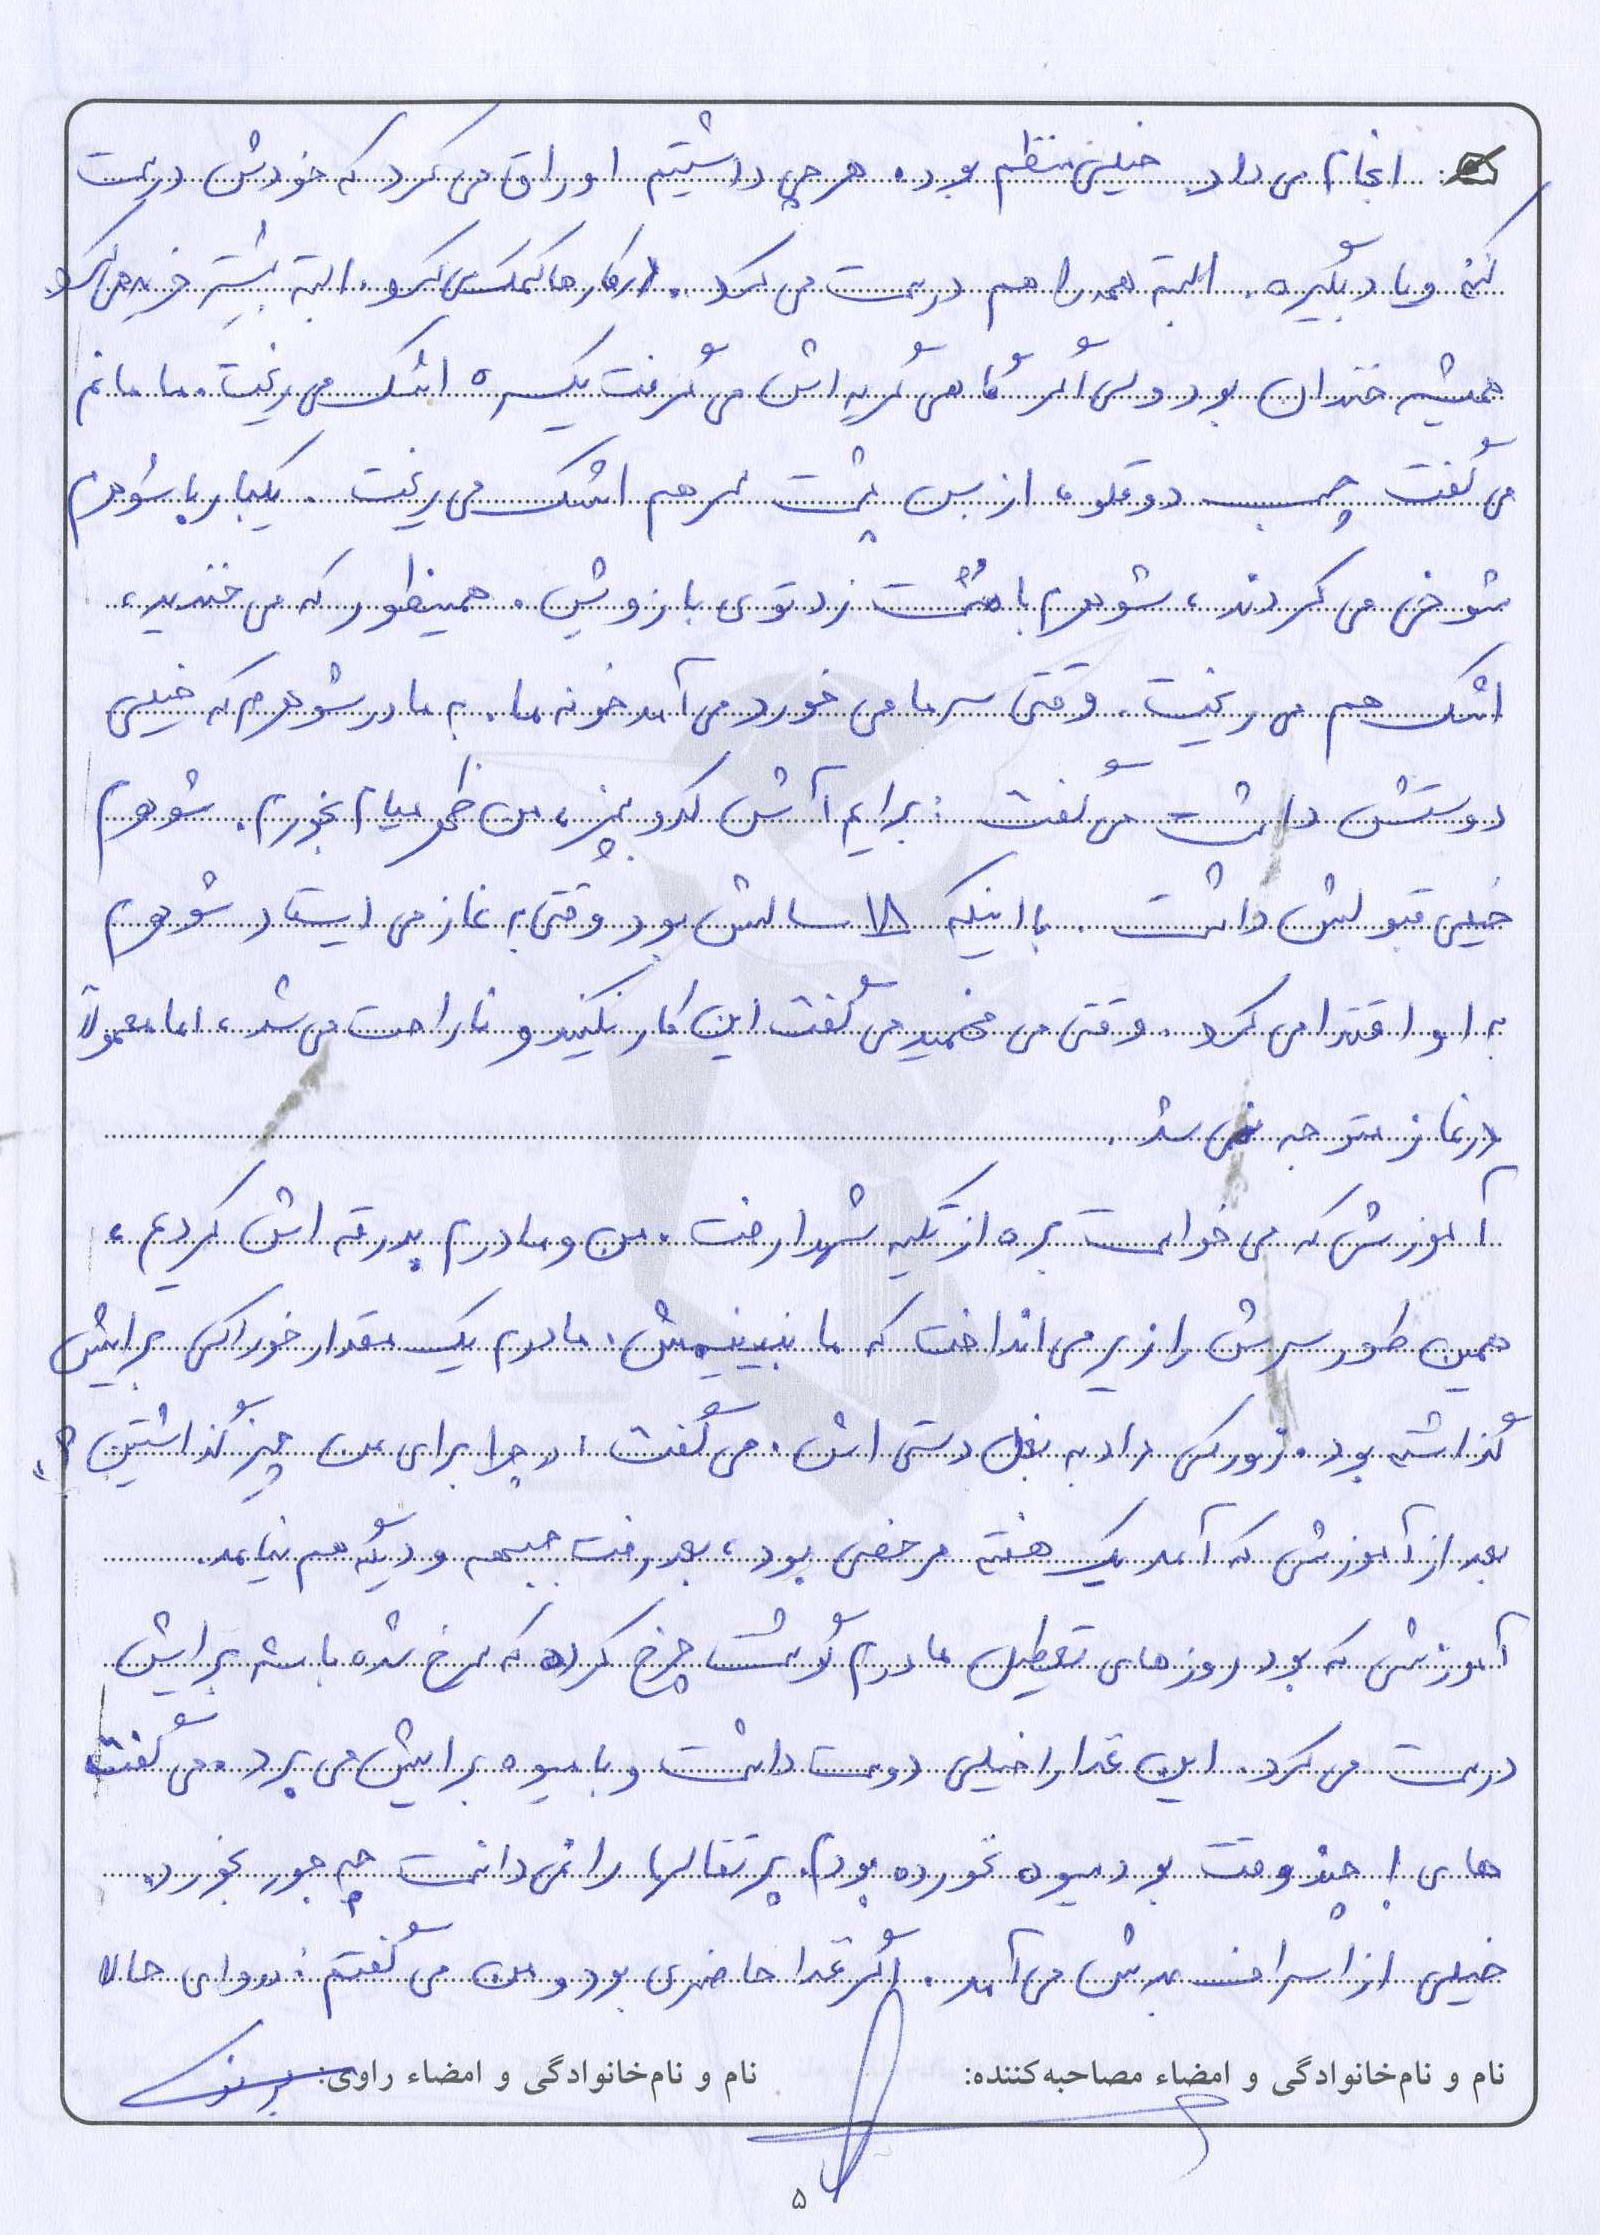 انجام می داد. خیلی منظم بود. هر چی داشتیم اوراق می کرد که خودش درست
کنه و یاد بگیره. البته همه را هم درست می کرد. در کارها کمک می کرد، البته بیشتر خرید می کرد.
همیشه خندان بود ولی اگر گاهی گریه اش می گرفت یکسره اشک می ریخت. مامانم
می گفت چسب دوقلو، از بس پشت سر هم اشک می ریخت. یکبار با شوهرم
شوخی می کردند، شوهرم با مشت زد توی بازویش. همینطور که می خندید،
اشک هم می ریخت. وقتی سرما می خورد می آمد خونه ما. به مادر شوهرم که خیلی
دوستش داشت می گفت: برایم آش کدو بپز، من ظهر میام بخورم. شوهرم
خیلی قبولش داشت. با اینکه ۱۸ سالش بود وقتی به نماز می ایستاد شوهرم
به او اقتدا می کرد. وقتی می فهمید می گفت این کار نکنید و ناراحت می شد، اما معمولاً
در نماز متوجه نمی شد.
آموزش که می خواست بره از تکیه شهدا رفت. من و مادرم بدرقه اش کردیم،
همین طور سرش را زیر می انداخت که ما نبینیمش. مادرم یک مقدار خوراکی برایش
گذاشته بود. زورکی داد به بغل دستی اش. می گفت: «چرا برای من چیز گذاشتین؟»
بعد از آموزش که آمد یک هفته مرخصی بود، بعد رفت جبهه و دیگه هم نیامد.
آموزشی که بود روزهای تعطیل مادرم گوشت چرخ کرده که سرخ شده باشه برایش
درست می کرد. این غذا را خیلی دوست داشت و با میوه برایش می برد. می گفت
های! چند وقت بود میوه نخورده بودم. پرتقالها را نمی دانست چه جور بخورد.
خیلی از اسراف بدش می آمد. اگر غذا حاضری بود و من می گفتم: «وای حالا
نام و نام‌خانوادگی و امضاء مصاحبه‌کننده: نام و نام‌خانوادگی و امضاء راوی:
۵